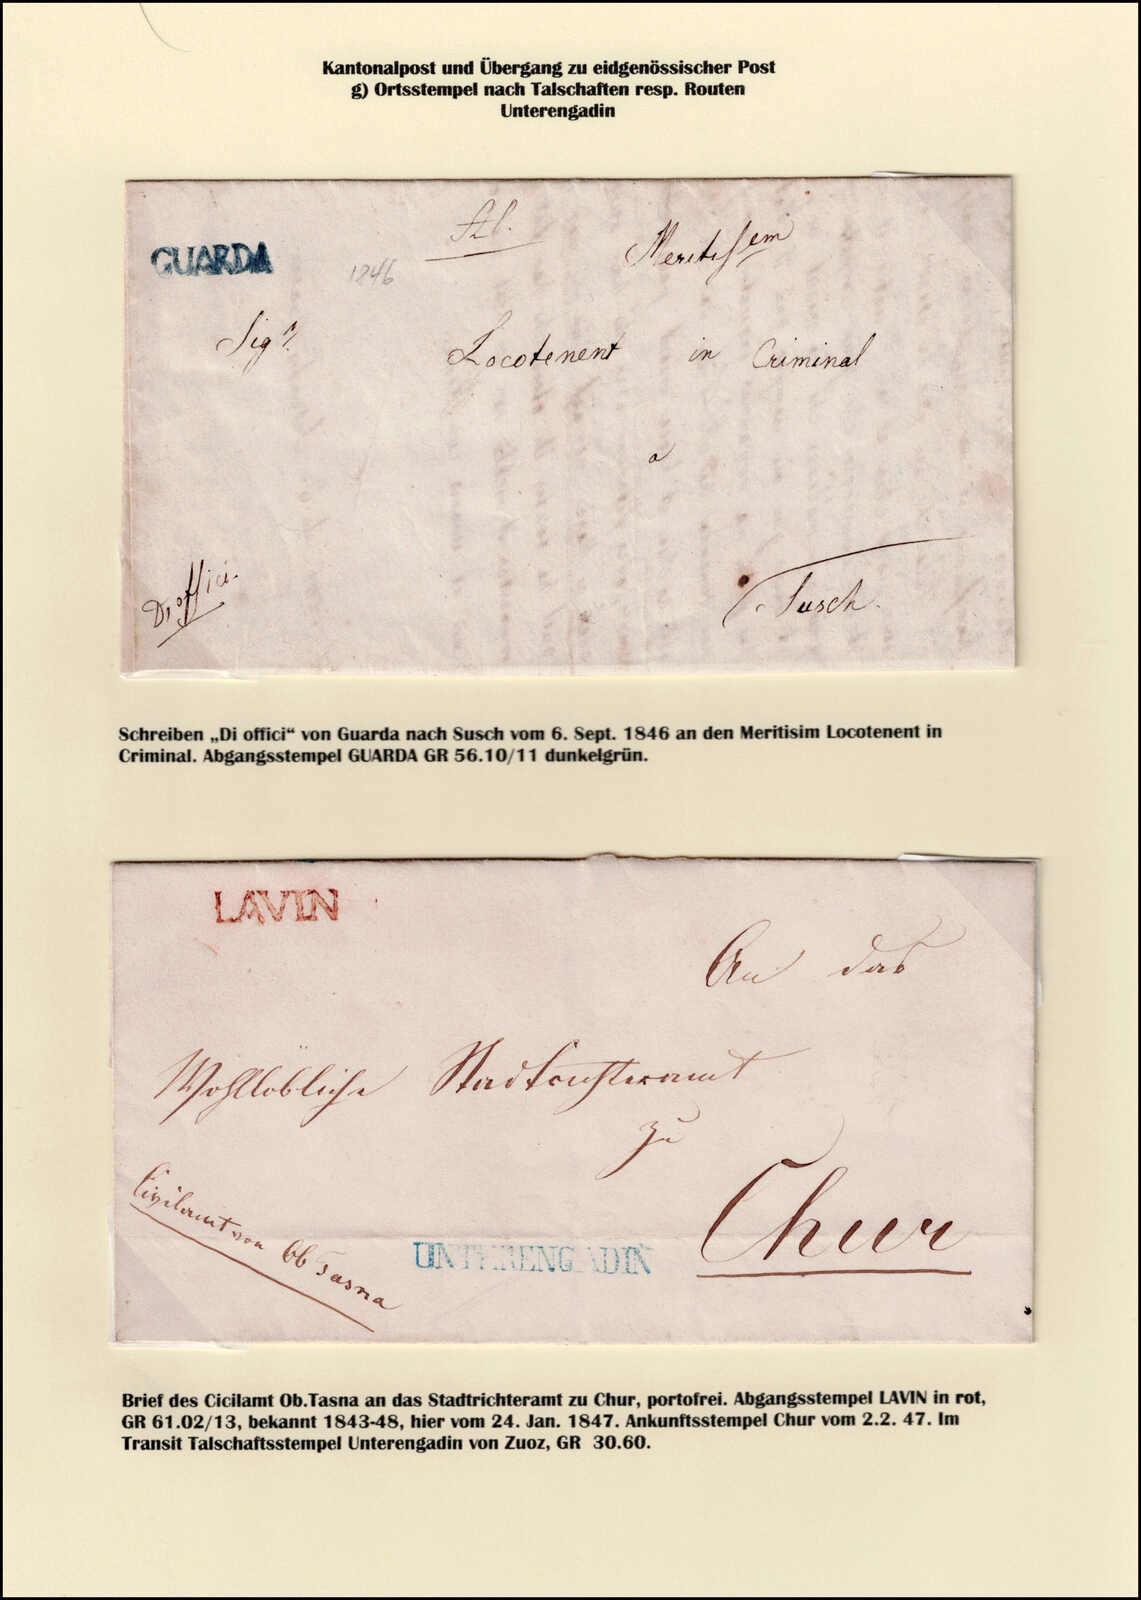 Kantonalpost und Übergang zu eidgenössischer Post
g) Ortsstempel nach Talschaften resp. Routen
Unterengadin
GUARDA
1846
Meritissem
Sigr.
Locotenent in Criminal
a
Susch.
Di offici.
Schreiben „Di offici“ von Guarda nach Susch vom 6. Sept. 1846 an den Meritisim Locotenent in
Criminal. Abgangsstempel GUARDA GR 56.10/11 dunkelgrün.
LAVIN
An das
Wohllöbliche Stadtrichteramt
zu
Chur
Civilamt von Ob Tasna
UNTERENGADIN
Brief des Cicilamt Ob.Tasna an das Stadtrichteramt zu Chur, portofrei. Abgangsstempel LAVIN in rot,
GR 61.02/13, bekannt 1843-48, hier vom 24. Jan. 1847. Ankunftsstempel Chur vom 2.2. 47. Im
Transit Talschaftsstempel Unterengadin von Zuoz, GR  30.60.